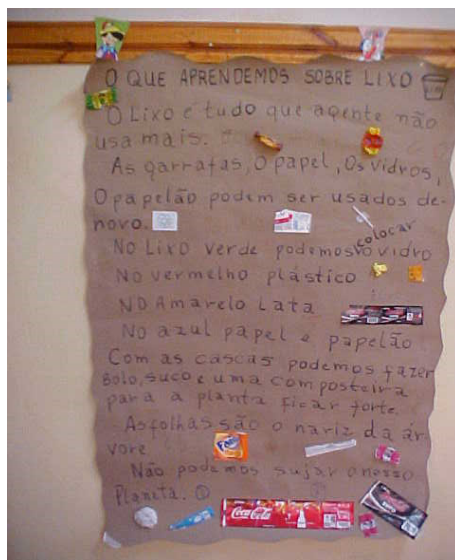 O QUE APRENDEMOS SOBRE LIXO
O Lixo é tudo que agente não
usa mais.
As garrafas, O papel, Os vidros,
O papelão podem ser usados de-
novo.
colocar
No Lixo verde podemos o vidro
No vermelho plástico
NO Amarelo Lata
No azul papel e papelão
Com as cascas podemos fazer
Bolo, suco e uma composteira
para a planta ficar forte.
As folhas são o nariz da ár
vore
Não podemos sujar o nosso
Planeta.
Coca-Cola